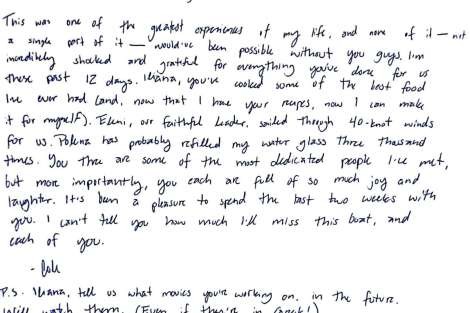 This was one of the greatest experiences of my life, and none of it — not
a single part of it — would've been possible without you guys. I'm
incredibly shocked and grateful for everything you've done for us
these past 12 days. Iliana, you've cooked some of the best food
I've ever had (and, now that I have your recipes, now I can make
it for myself). Eleni, our faithful leader, sailed through 40-knot winds
for us. Polina has probably refilled my water glass three thousand
times. You three are some of the most dedicated people I've met,
but more importantly, you each are full of so much joy and
laughter. It's been a pleasure to spend the last two weeks with
you. I can't tell you how much I'll miss this boat, and
each of you.
P.S. Iliana, tell us what movies you're working on, in the future.
I will watch them. (Even if they're in Greek!)